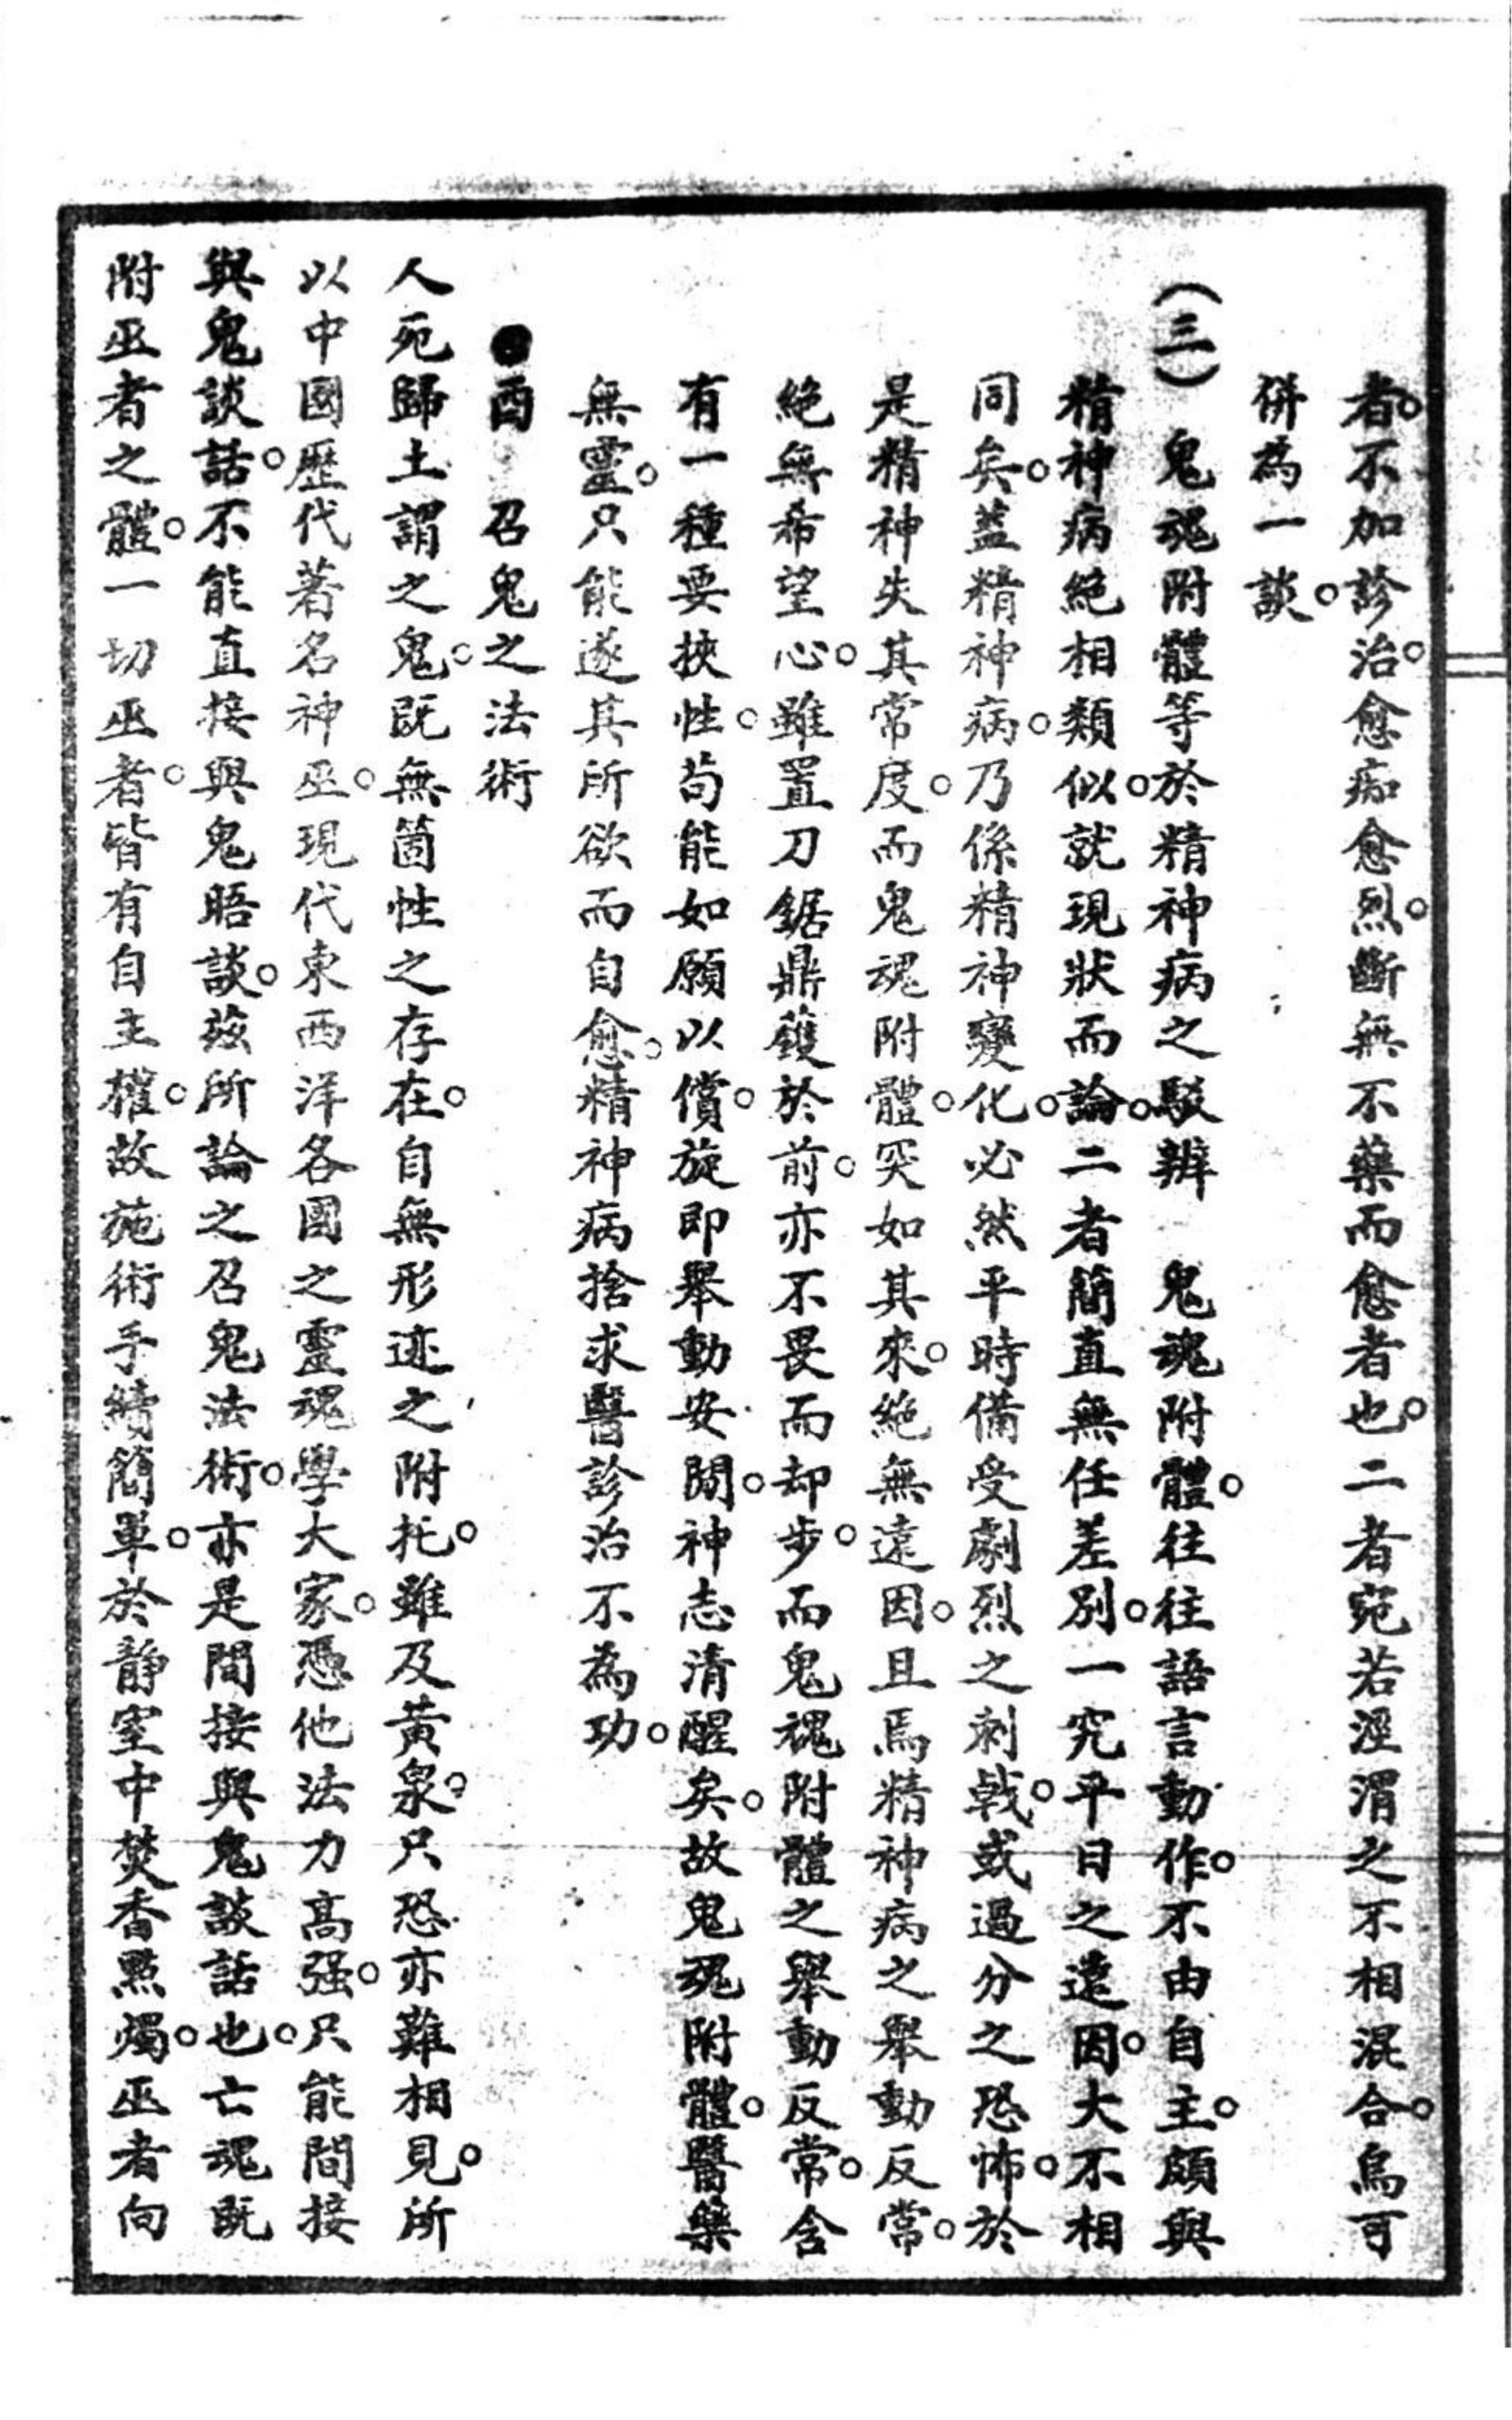 者。不加診治。愈痴愈烈。斷無不藥而愈者也。二者宛若涇渭之不相混合。烏可
併為一談。
（三）鬼魂附體等於精神病之駁辨　鬼魂附體。往往語言動作。不由自主。頗與
精神病絕相類似。就現狀而論。二者簡直無任差別。一究平日之遠因。大不相
同矣。蓋精神病。乃係精神變化。必然平時備受劇烈之刺戟。或過分之恐怖。於
是精神失其常度。而鬼魂附體。突如其來。絕無遠因。且焉精神病之舉動反常。
絕無希望心。雖置刀鋸鼎鑊於前。亦不畏而却步。而鬼魂附體之舉動反常。含
有一種要挾性。苟能如願以償。旋即舉動安閒。神志清醒矣。故鬼魂附體。醫藥
無靈。只能遂其所欲而自愈。精神病捨求醫診治不為功。
●酉　召鬼之法術
人死歸土謂之鬼。既無箇性之存在。自無形迹之附托。雖及黃泉。只恐亦難相見。所
以中國歷代著名神巫。現代東西洋各國之靈魂學大家。憑他法力高强。只能間接
與鬼談話。不能直接與鬼晤談。茲所論之召鬼法術。亦是間接與鬼談話也。亡魂既
附巫者之體。一切巫者。皆有自主權。故施術手續簡單。於靜室中焚香點燭。巫者向